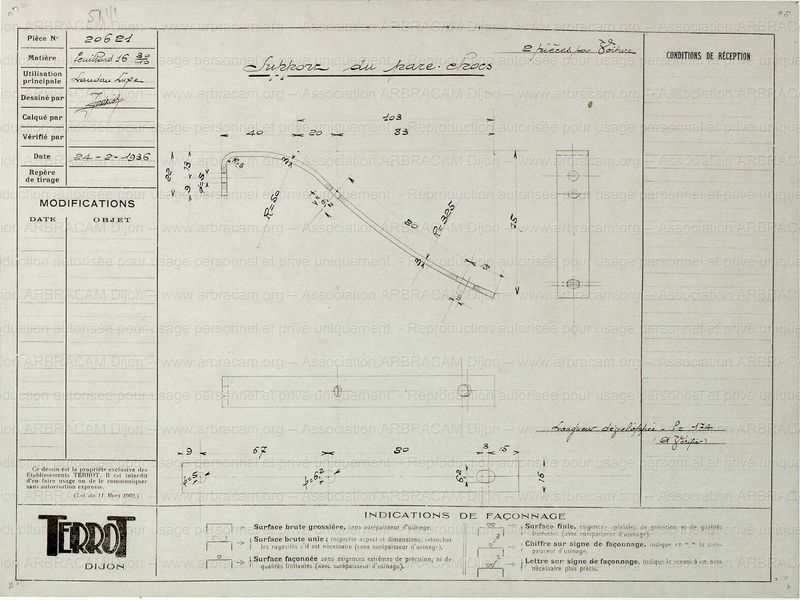 Pièce N° 20621
Matière Feuillard 16 30/10
Utilisation principale Landau Luxe
Dessiné par
Calqué par
Vérifié par
Date 24-2-1936
Repère de tirage
MODIFICATIONS
DATE OBJET
Support du pare-chocs
2 pièces par Voiture
CONDITIONS DE RÉCEPTION
103
40 20 83
22 13 9
R=50
80
R=325
75
9 67 80 3 15
Longueur développée = 174
Ce dessin est la propriété exclusive des
Etablissements TERROT. Il est interdit
d'en faire usage ou de le communiquer
sans autorisation expresse.
(Loi du 11 Mars 1902.)
TERROT
DIJON
INDICATIONS DE FAÇONNAGE
Surface brute grossière, sans surépaisseur d'usinage.
Surface brute unie; respecter aspect et dimensions, retoucher
les rugosités s'il est nécessaire (sans surépaisseur d'usinage).
Surface façonnée sans exigences extrêmes de précision, ni de
qualités frottantes (avec surépaisseur d'usinage).
Surface finie, exigences spéciales de précision et de qualités
frottantes (avec surépaisseur d'usinage).
Chiffre sur signe de façonnage, indique en
Lettre sur signe de façonnage, indique le renvoi à un nota
nécessaire plus précis.
www.arbracam.org -- Association ARBRACAM Dijon
Reproduction autorisée pour usage personnel et privé uniquement.